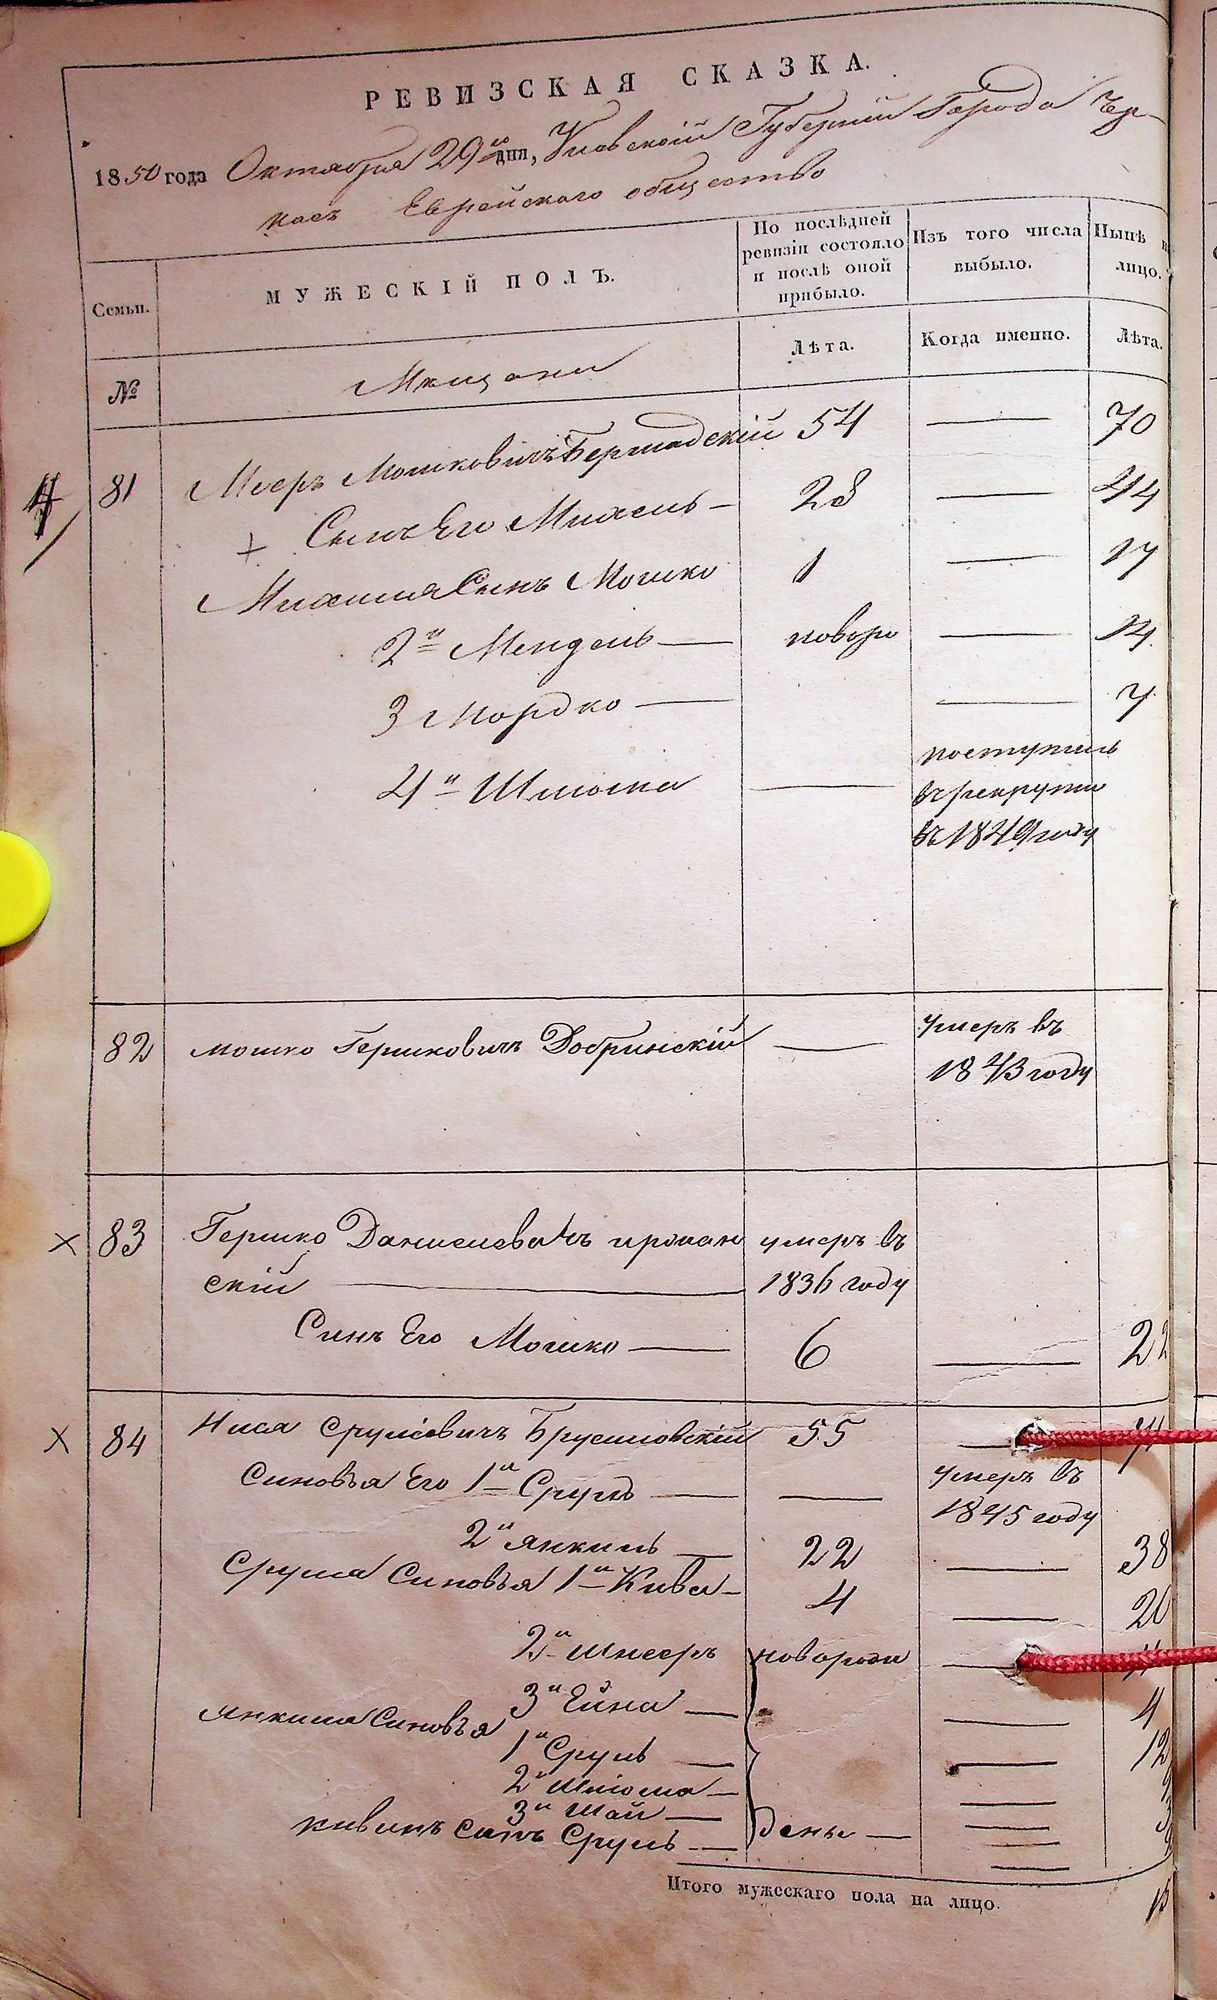 РЕВИЗСКАЯ СКАЗКА.
1850 года Октября 29го дня, Киевской Губерніи Города Чер-
касъ Еврейского общество
Семьи. МУЖЕСКІЙ ПОЛЪ. По послѣдней ревизіи состояло и послѣ оной прибыло. Изъ того числа выбыло. Нынѣ на лицо.
№ Мещане Лѣта. Когда именно. Лѣта.
4 81 Мееръ Мошковичъ Бершадскій 54 — 70
Сынъ Его Михель — 28 — 44
Михеля Сынъ Мошко 1 — 17
2й Мендель — новоро — 14
3 Мордко — — 7
4й Шлиома — поступилъ
в рекруты
въ 1849 году
82 Мошко Гершковичъ Добринскій — умеръ въ
1843 году
83 Гершко Даниелевичъ
скій — умеръ въ 1836 году
Синъ Его Мошко — 6 — 22
84 Нися Срулiевичъ Брусиловскій 55 — 71
Синовья Его 1й Сруль — — умеръ въ
1845 году
2й Янкиль — 22 — 38
Сруля Синовья 1й Кива — 4 — 20
2й Шнееръ новорож —
3й — 4
Янкиля Синовья
1й Сруль — — 12
2й Шлиома —
3й Шай —
Кивинъ Синъ Сруль — дены —
Итого мужескаго пола на лицо. 15